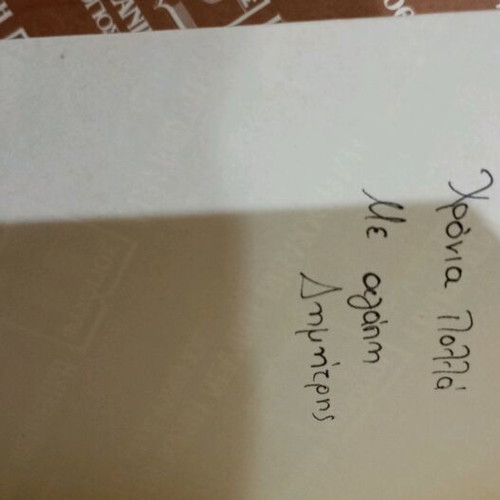 Χρόνια Πολλά
Με αγάπη
Δημήτρης